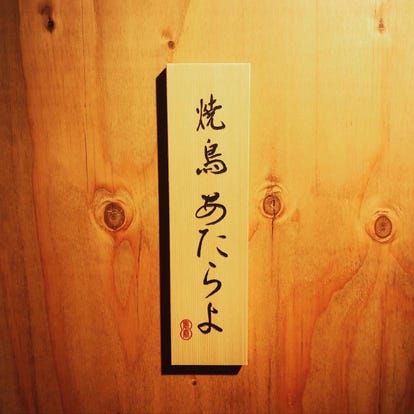 焼鳥 あたらよ